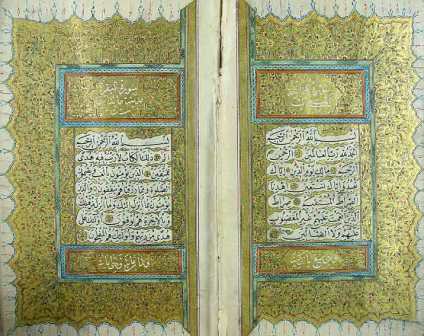 بسم الله الرحمن الرحيم
الحمد لله رب العالمين الرحمن
الرحيم مالك يوم الدين اياك
نعبد واياك نستعين اهدنا
الصراط المستقيم صراط
الذين انعمت عليهم غير المغضوب
عليهم ولا الضالين
سورة البقرة
بسم الله الرحمن الرحيم
الم ذلك الكتاب لا ريب فيه هدى
للمتقين الذين يؤمنون بالغيب ويقيمون
الصلوة ومما رزقناهم ينفقون والذين
يؤمنون بما انزل اليك وما انزل
من قبلك وبالاخرة هم يوقنون اولئك على
هدى من ربهم واولئك هم المفلحون